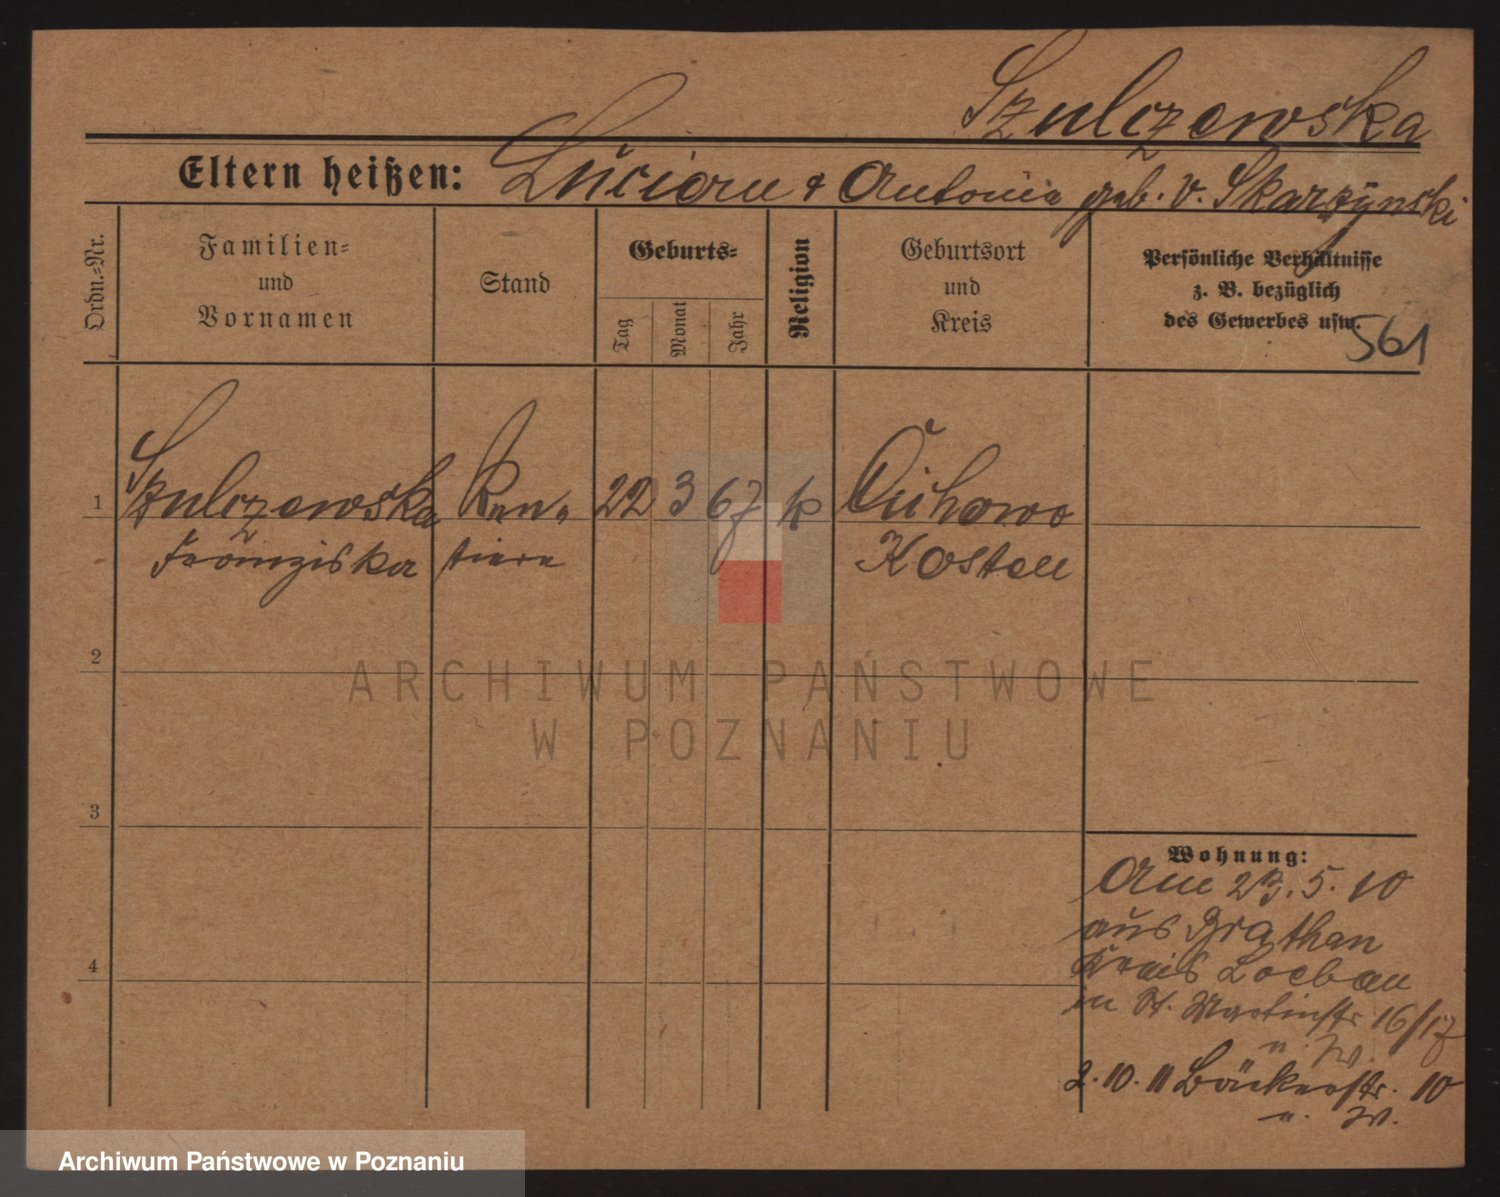 Szulczewska
Eltern heißen: Lucian & Antonie geb. v. Skarzynski
Ordn.-Nr.
Familien- und Vornamen
Stand
Geburts-
Tag
Monat
Jahr
Religion
Geburtsort und Kreis
Persönliche Verhältnisse
z. B. bezüglich
des Gewerbes usw.
561
1 Szulczewska Ren- 22 3 67 k Cichowo
Franziska tiere Kosten
2
ARCHIWUM PAŃSTWOWE
W POZNANIU
3
Wohnung:
Am 23. 5. 10
aus
Kreis Loebau
4
in St. Martinstr 16/17
2. 10. 11 Bäckerstr. 10
Archiwum Państwowe w Poznaniu